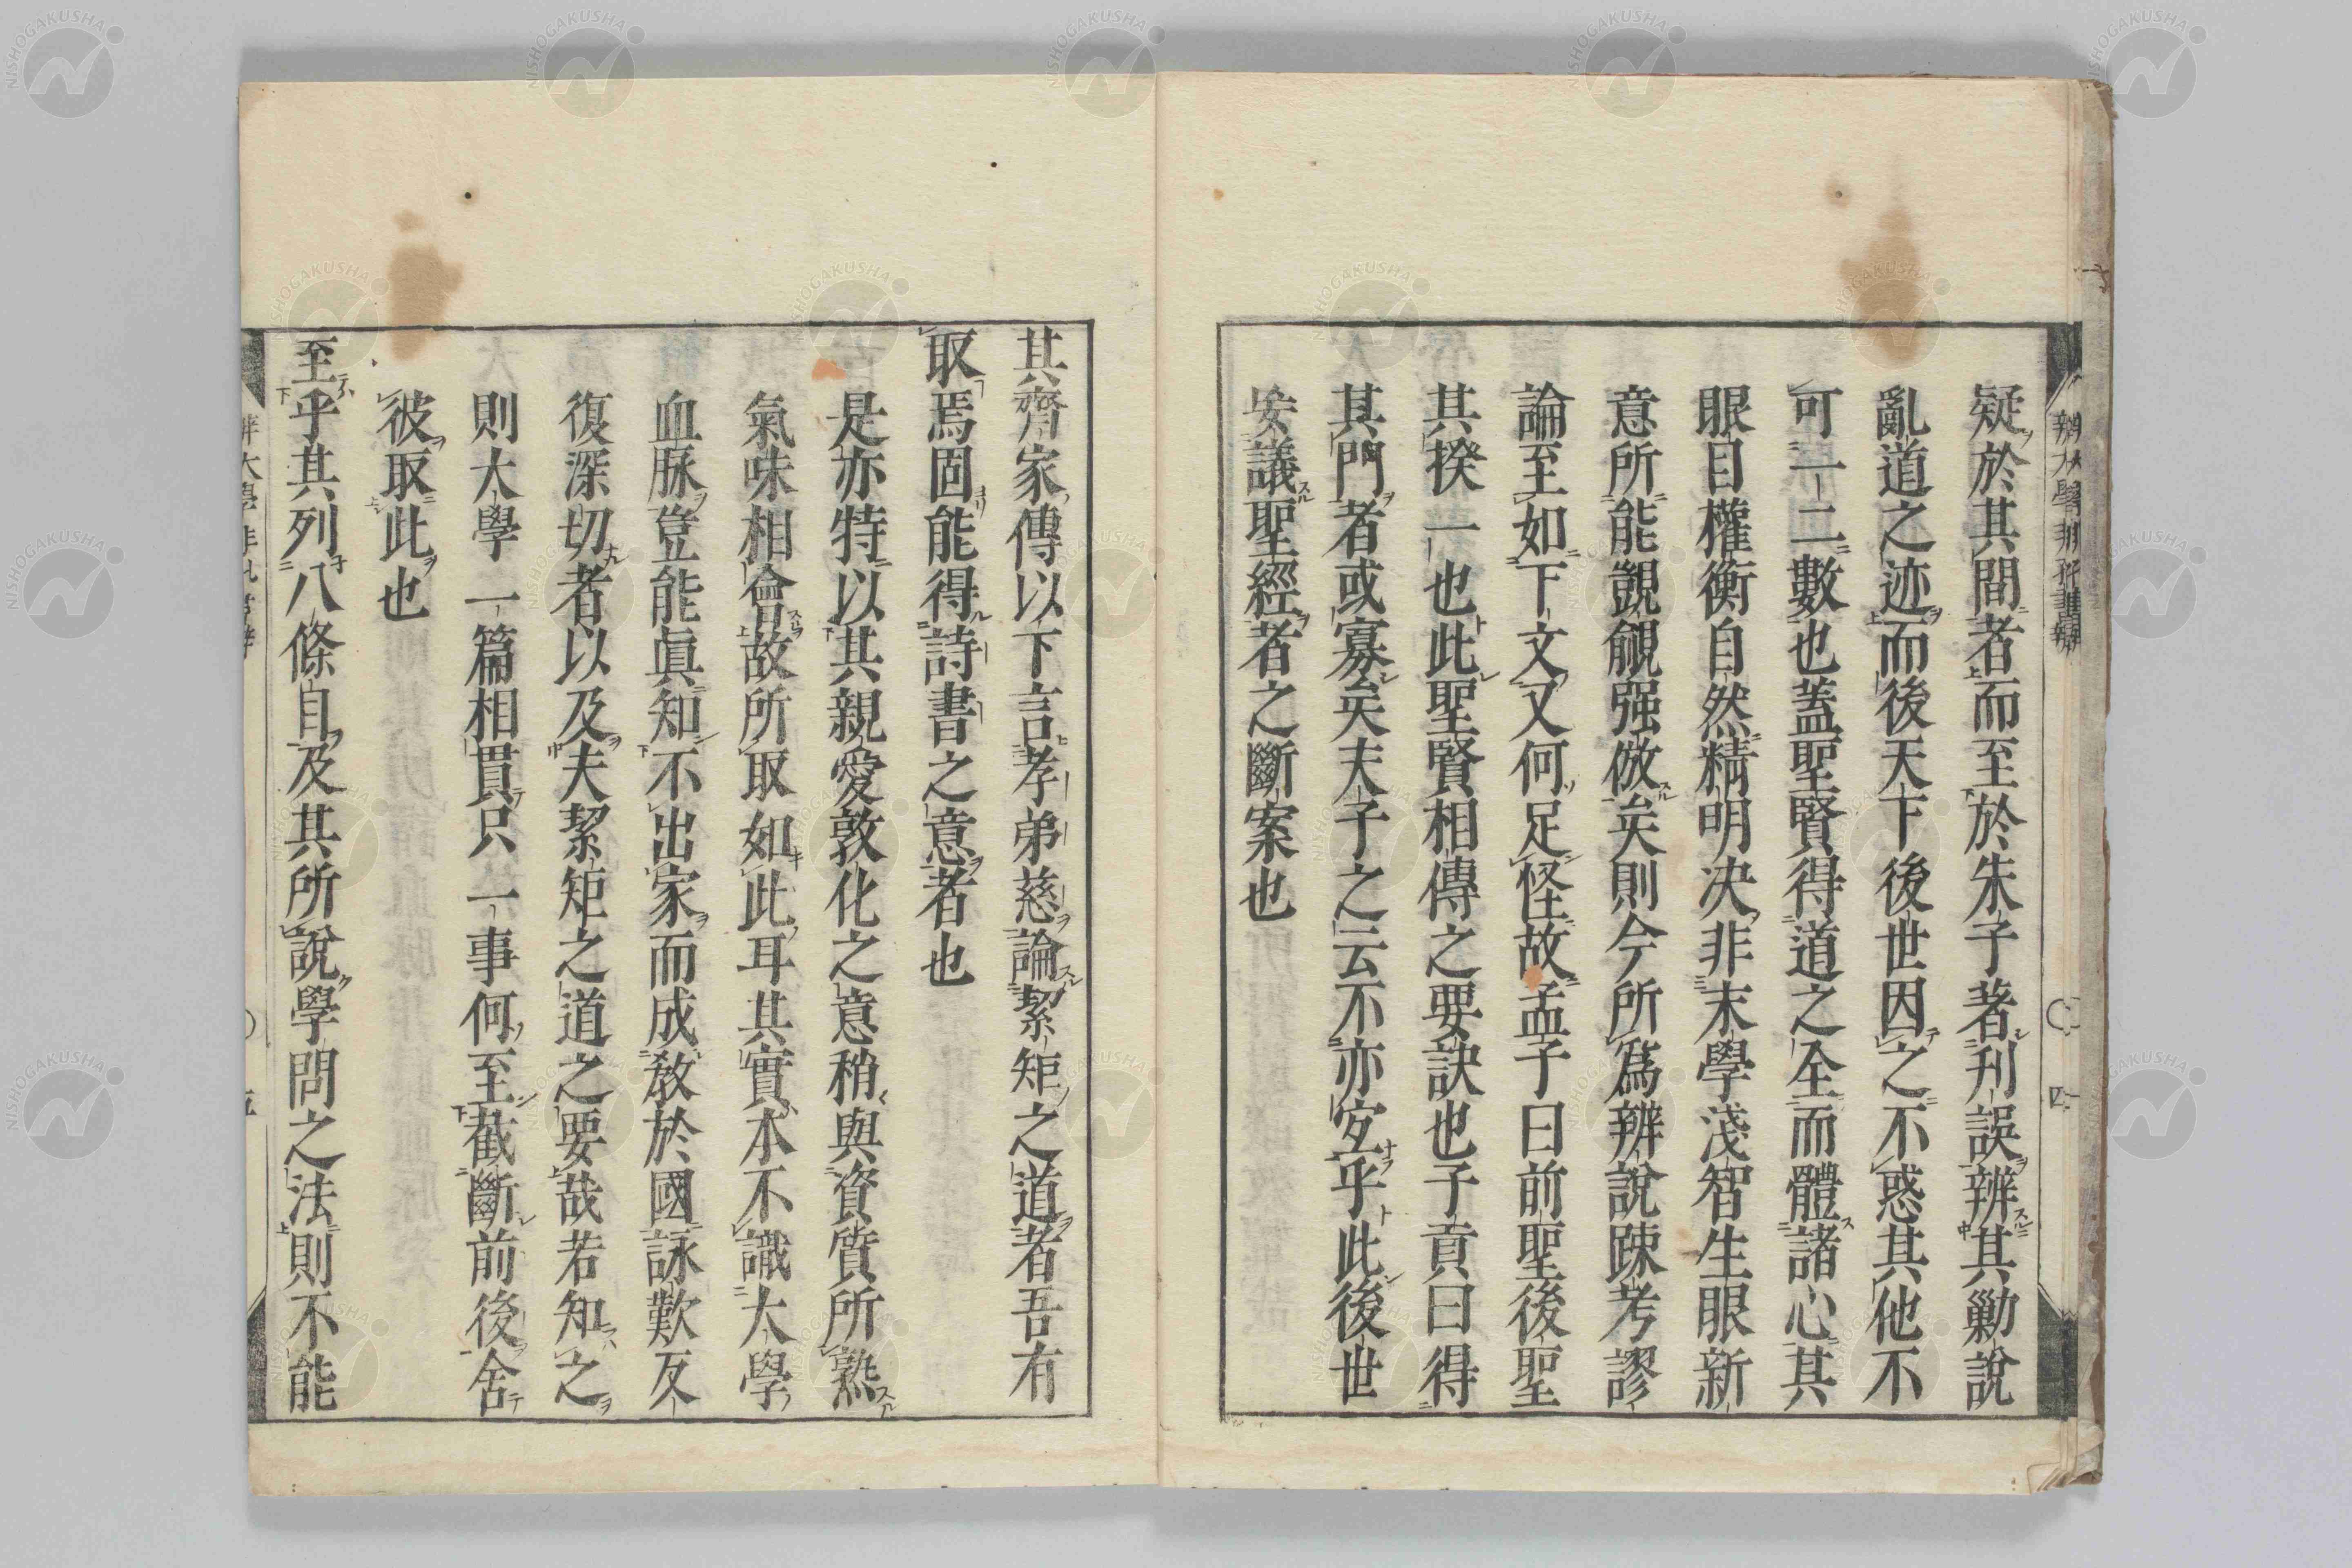 辨大學非孔書辨 〇 四
疑於其間者而至於朱子著刋誤辨其勦說
亂道之迹而後天下後世因之不惑其他不
可一二數也蓋聖賢得道之全而體諸心其
眼目權衡自然精明决非末學淺智生眼新
意所能覬覦强倣矣則今所爲辨說踈考謬
論至如下文又何足怪故孟子曰前聖後聖
其揆一也此聖賢相傳之要訣也子貢曰得
其門者或寡矣夫子之云不亦宜乎此後世
妄議聖經者之斷案也
其齊家傳以下言孝弟慈論絜矩之道者吾有
取焉固能得詩書之意者也
是亦特以其親愛敦化之意稍與資質所熟
氣味相會故所取如此耳其實本不識大學
血脉豈能眞知不出家而成教於國詠歎反
復深切者以及夫絜矩之道之要哉若知之
則大學一篇相貫只一事何至截斷前後舍
彼取此也
至乎其列八條自及其所說學問之法則不能
辨大學非孔書辨 〇 五
NISHOGAKUSHA